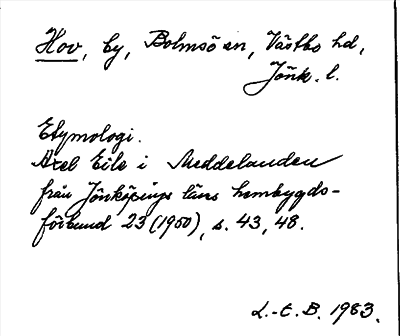 Hov, by, Bolmsö sn, Västbo hd,
Jönk. l.
Etymologi.
Axel Eile i Meddelanden
från Jönköpings läns hembygds-
förbund 23 (1950), s. 43, 48.
L.-E. B. 1983.